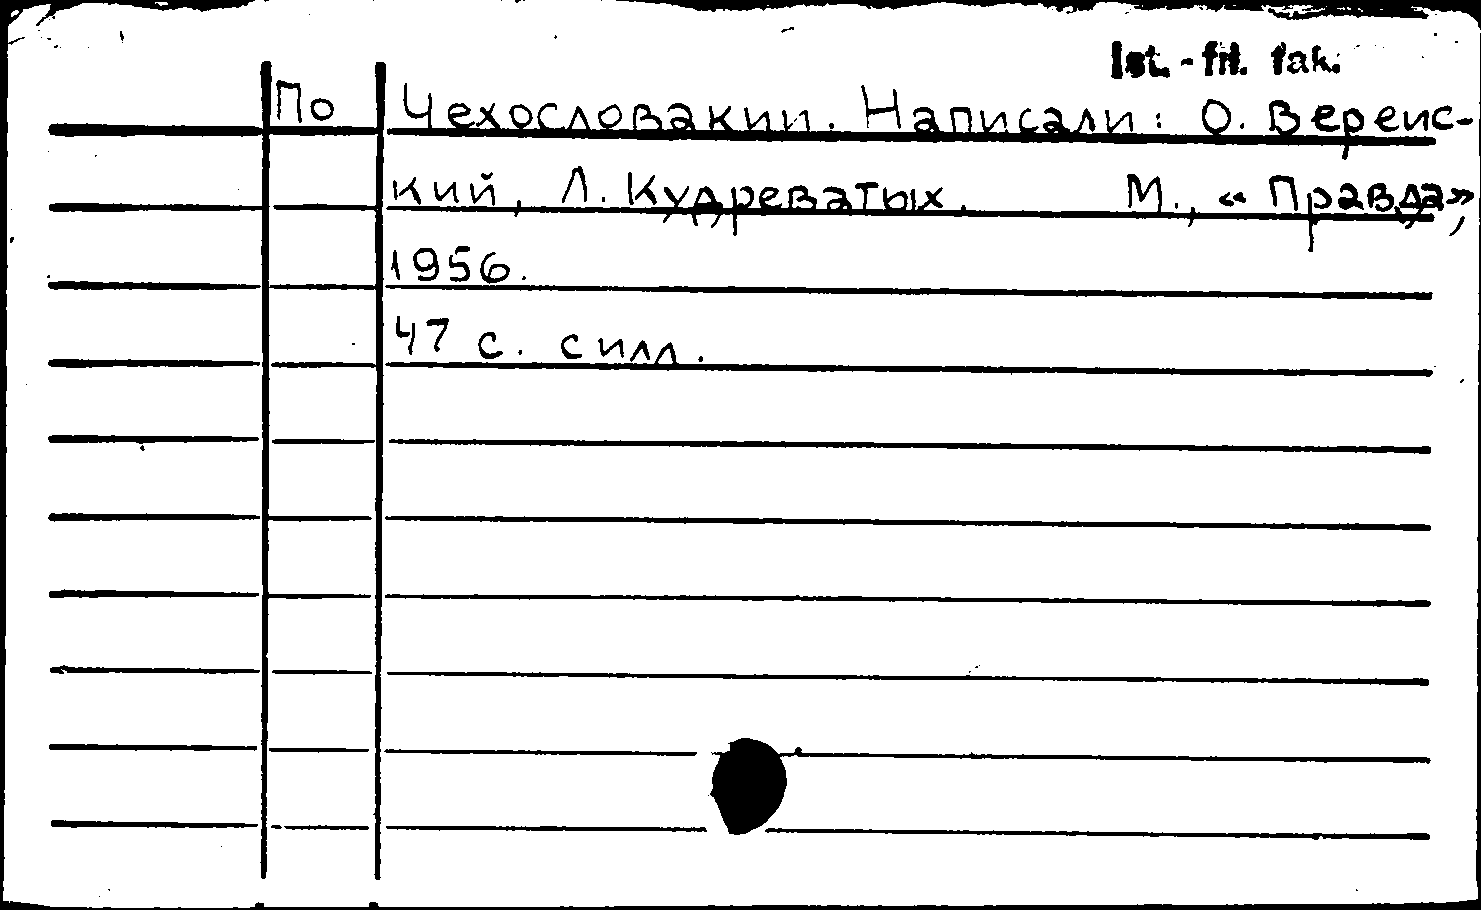 Ist.-fil. fak.
По Чехословакии. Написали: О. Вереис-
кий, Л. Кудреватых. М., «Правда»,
1956.
47 с. с илл.